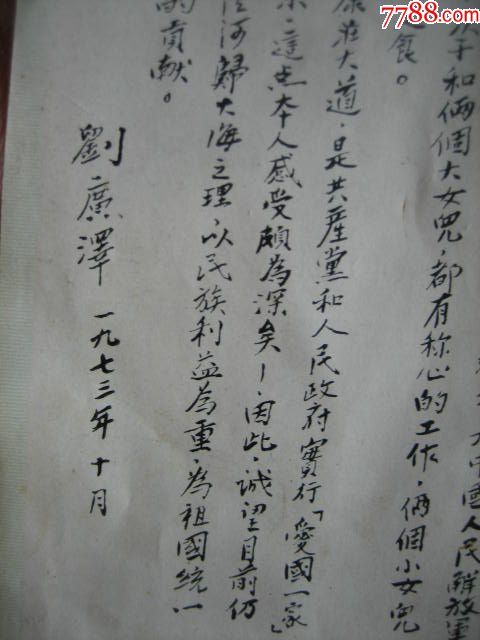 中國人民解放軍
子和倆個大女兒，都有称心的工作，倆個小女兒
食。
康莊大道，是共產黨和人民政府實行「愛國一家」
這点本人感受頗為深矣！因此，誠望目前仍
河歸大海之理，以民族利益為重，為祖國統一
的貢獻。
劉廣澤 一九七三年十月
7788.com
中国收藏热线